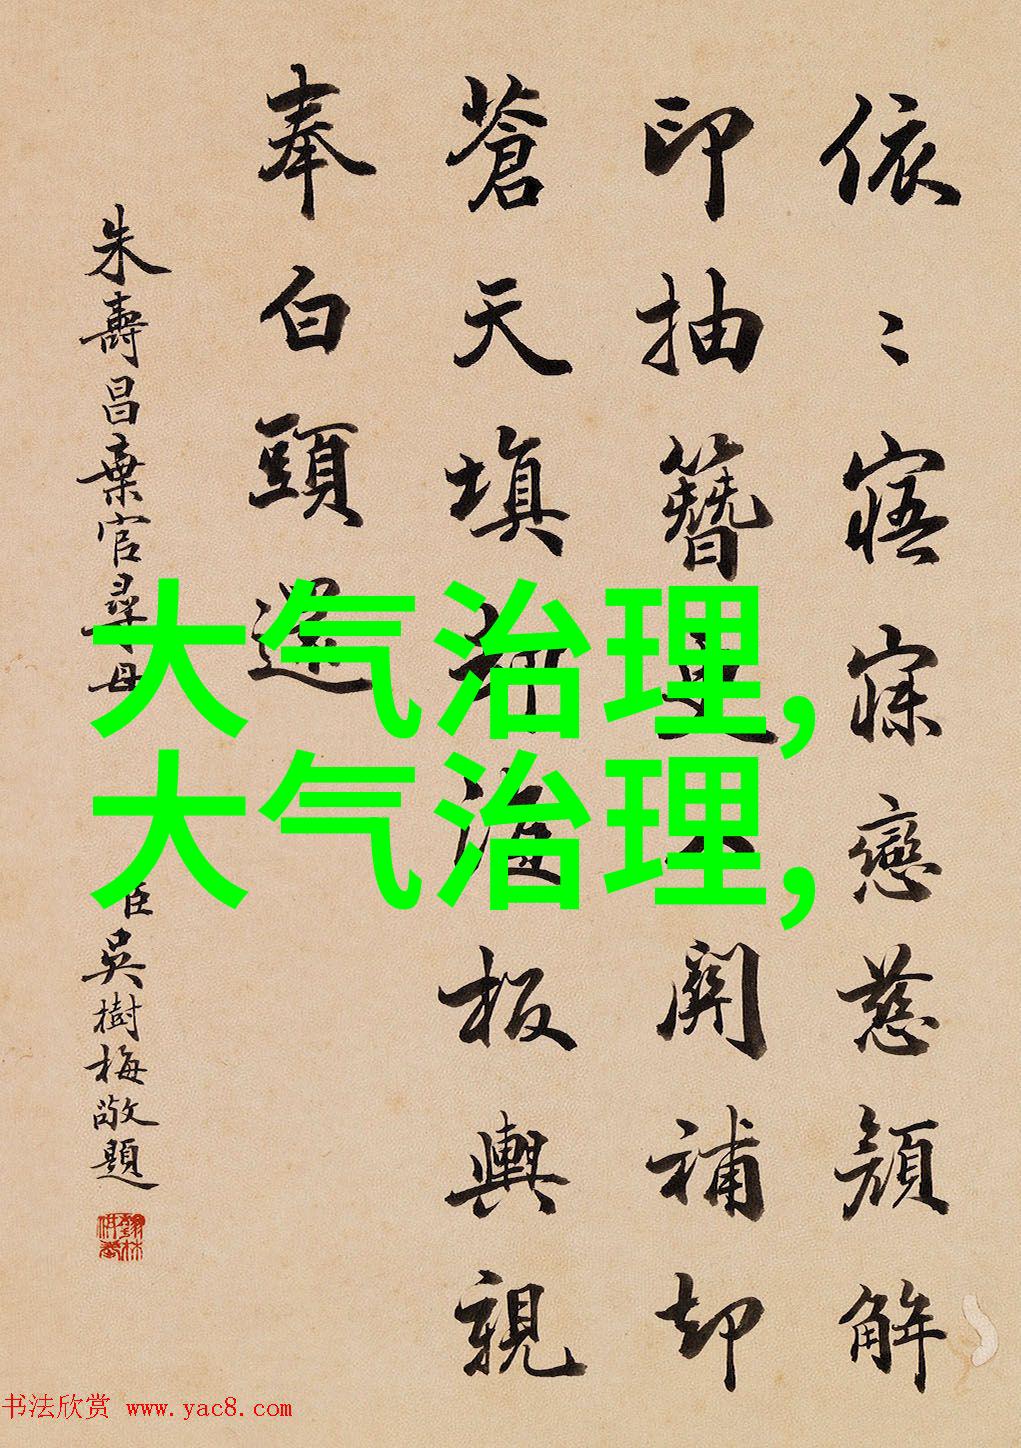 依〻寤寐戀慈顏解
印抽簪更入關補却
蒼天填却海板輿親
奉白頭還
朱壽昌棄官尋母
臣吳樹梅敬題
大气治理,
大气治理,
书法欣赏 www.yac8.com